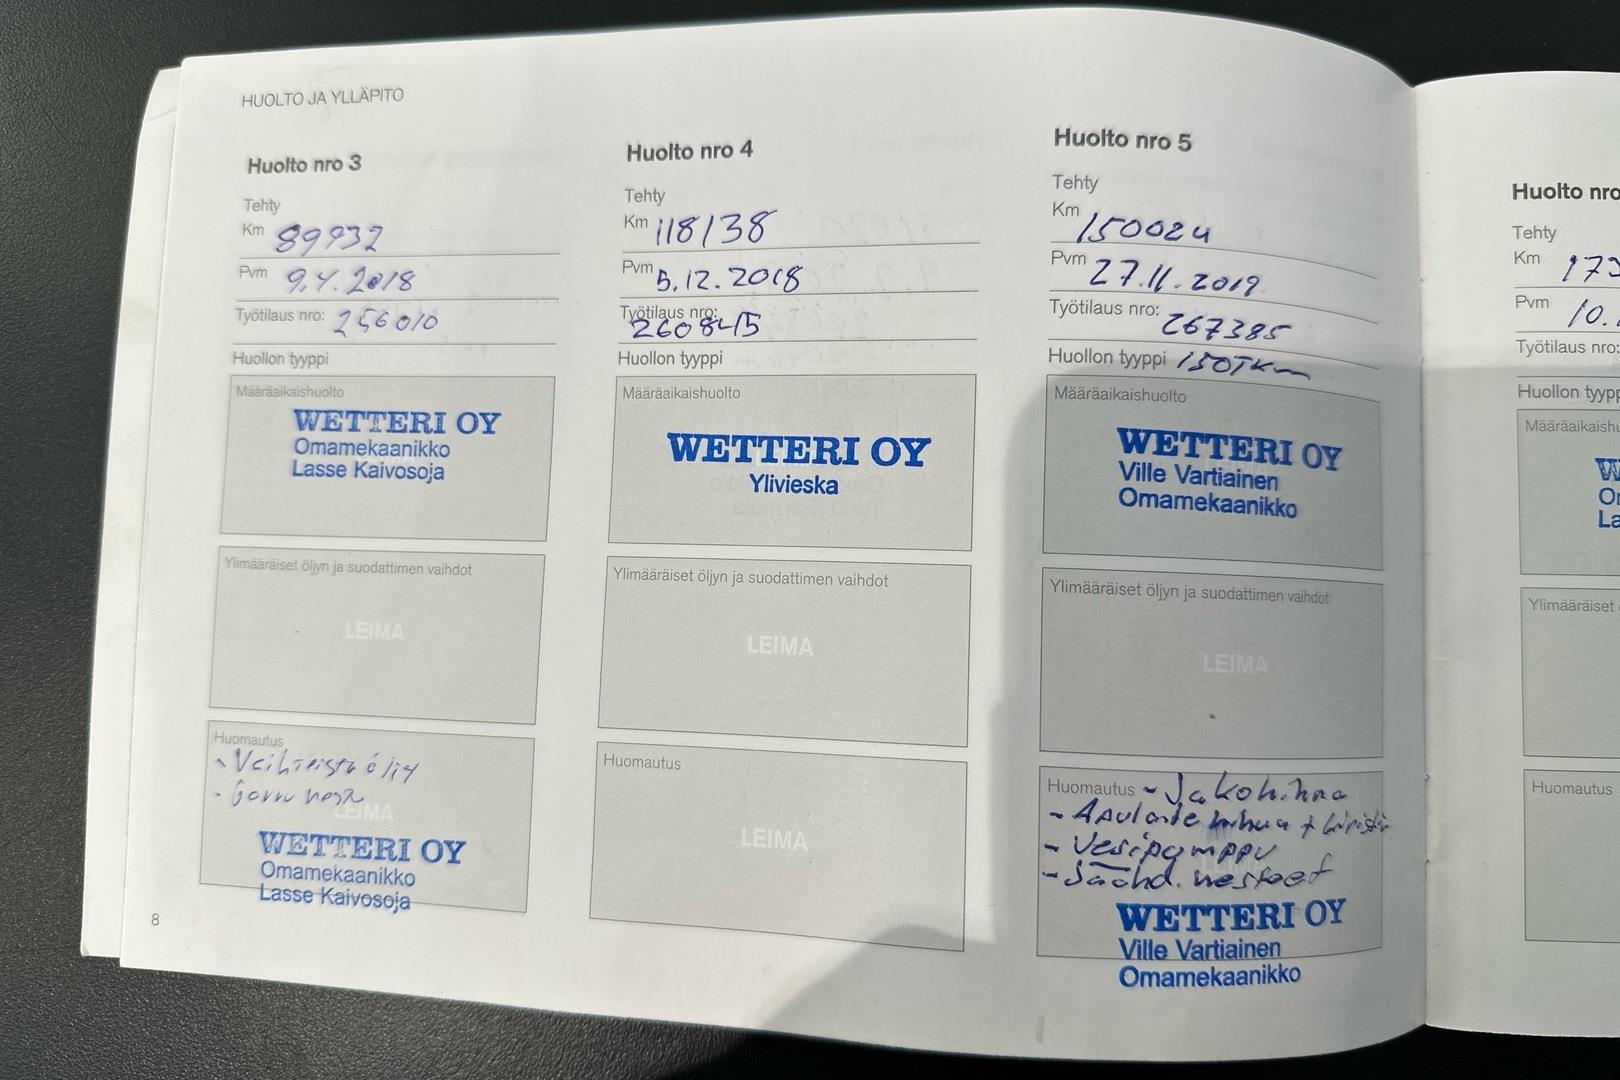 HUOLTO JA YLLÄPITO
Huolto nro 3
Tehty
Km 89932
Pvm 9.4.2018
Työtilaus nro: 256010
Huollon tyyppi
Määräaikaishuolto
WETTERI OY
Omamekaanikko
Lasse Kaivosoja
Ylimääräiset öljyn ja suodattimen vaihdot
LEIMA
Huomautus
- Vaihteistoöljy
- Jarruneste
LEIMA
WETTERI OY
Omamekaanikko
Lasse Kaivosoja
8
Huolto nro 4
Tehty
Km 118138
Pvm 5.12.2018
Työtilaus nro: 260845
Huollon tyyppi
Määräaikaishuolto
WETTERI OY
Ylivieska
Ylimääräiset öljyn ja suodattimen vaihdot
LEIMA
Huomautus
LEIMA
Huolto nro 5
Tehty
Km 150024
Pvm 27.11.2019
Työtilaus nro: 267385
Huollon tyyppi 150TKm
Määräaikaishuolto
WETTERI OY
Ville Vartiainen
Omamekaanikko
Ylimääräiset öljyn ja suodattimen vaihdot
LEIMA
Huomautus - Jakohihna
- Apulaitehihna + kiristin
- Vesipumppu
- Jäähd. nesteet
WETTERI OY
Ville Vartiainen
Omamekaanikko
Huolto nro
Tehty
Km 173
Pvm 10.
Työtilaus nro:
Huollon
Ylimääräiset
Huomautus